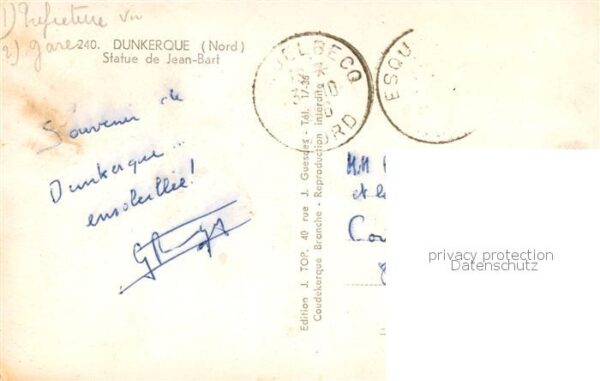 1) Préfecture
2) gare
240. DUNKERQUE (Nord)
Statue de Jean-Bart
Souvenir de
Dunkerque ...
ensoleillée!
Edition J. TOP. 40 rue J. Guesdes - Tél. 17-36
Coudekerque Branche - Reproduction interdite
ELBECQ
10
NORD
ESQU
MM
et
privacy protection
Datenschutz